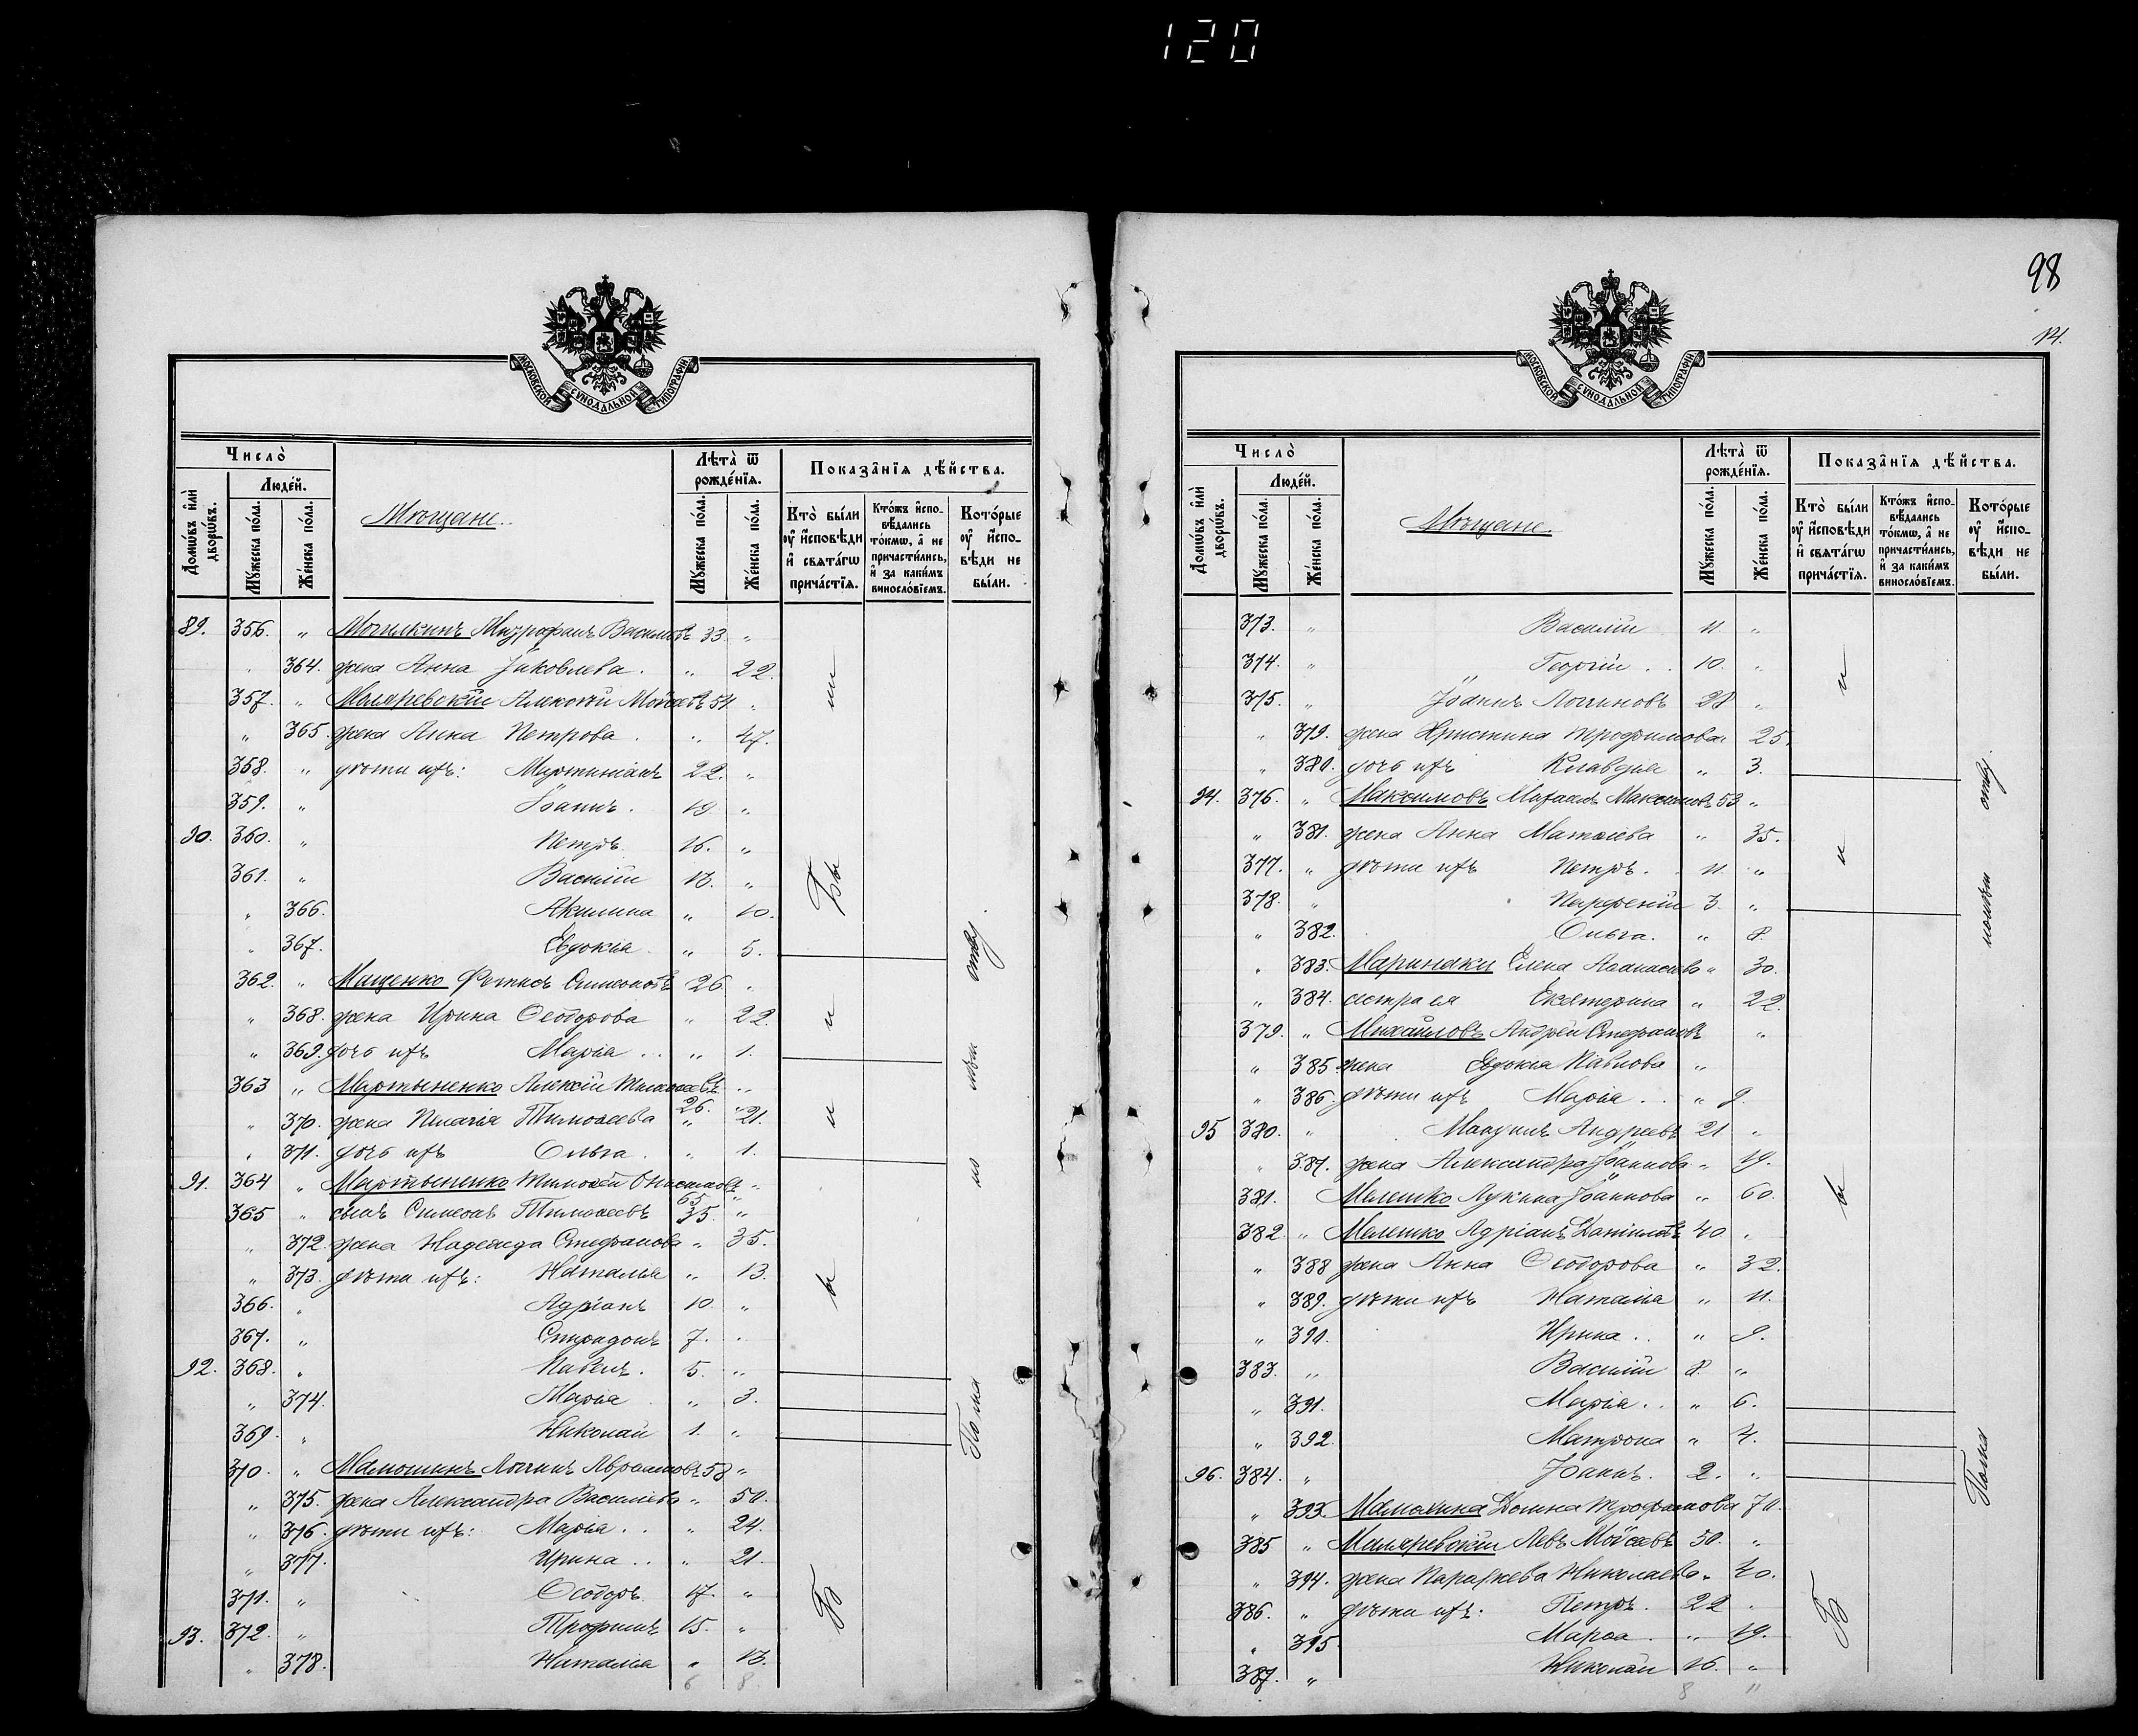 120
МОСКОВСКОЙ СѴНОДАЛЬНОЙ ТИПОГРАФІИ
Число̀
Лѣта̀ ѿ рожде́нїѧ.
Показа̑нїѧ дѣ́йства.
Домѡ́въ и҆лѝ дворѡ́въ.
Люде́й.
Мꙋ́жеска по́ла.
Же́нска по́ла.
Мѣщане.
Мꙋ́жеска по́ла.
Же́нска по́ла.
Кто̀ бы́ли ᲂу҆ и҆сповѣ́ди и҆ свѧта́гѡ прича́стїѧ.
Кто́жъ и҆спо-вѣ́дались то́кмѡ, а҆ не причасти́лись, и҆ за каки́мъ виносло́вїемъ.
Кото́рые ᲂу҆ и҆спо-вѣ́ди не бы́ли.
89. 356. „ Могилкинъ Митрофанъ Васильевъ 33 „
„ 364. жена Анна Іаковлева. „ 22.
357. „ Маляревскій Алексѣй Мойсеевъ 51 „
„ 365. жена Анна Петрова. „ 47.
358. „ дѣти ихъ: Мартиніанъ 22. „
359. „ Іоаннъ. 19. „
90. 360. „ Петръ 16. „
361. „ Василій 13. „
„ 366. Акилина „ 10.
„ 367. Евдокія „ 5.
362. „ Мащенко Симеоновъ 26 „
„ 368. жена Ирина Ѳеодорова „ 22.
„ 369. дочь ихъ Марія .. „ 1.
363 „ Мартыненко Алексій 26. „
„ 370. жена Пелагія Тимоѳеева „ 21.
„ 371. дочь ихъ Ольга. „ 1.
91. 364 „ Мартыненко Тимоѳей 65. „
365 „ сынъ Симеонъ Тимоѳеевъ 35. „
„ 372. жена Надежда Стефанова „ 35.
„ 373. дѣти ихъ: Наталія „ 13.
366. „ Адріанъ 10. „
367. „ Спиридонъ 7. „
92. 368. „ Павелъ. 5. „
„ 374. Марія „ 3.
369. „ Николай 1. „
370. „ Мамошинъ Логинъ Авраамовъ 58 „
„ 375. жена Александра Васильева „ 50.
„ 376. дѣти ихъ: Марія .. „ 24.
„ 377. Ирина .. „ 21.
371. „ Ѳеодоръ 17. „
93. 372. „ Трофимъ 15. „
„ 378. Наталія „ 13.
6 8.
98
14.
МОСКОВСКОЙ СѴНОДАЛЬНОЙ ТИПОГРАФІИ
Число̀
Лѣта̀ ѿ рожде́нїѧ.
Показа̑нїѧ дѣ́йства.
Домѡ́въ и҆лѝ дворѡ́въ.
Люде́й.
Мꙋ́жеска по́ла.
Же́нска по́ла.
Мѣщане.
Мꙋ́жеска по́ла.
Же́нска по́ла.
Кто̀ бы́ли ᲂу҆ и҆сповѣ́ди и҆ свѧта́гѡ прича́стїѧ.
Кто́жъ и҆спо-вѣ́дались то́кмѡ, а҆ не причасти́лись, и҆ за каки́мъ виносло́вїемъ.
Кото́рые ᲂу҆ и҆спо-вѣ́ди не бы́ли.
373. „ Василій 11. „
374. „ Георгій .. 10. „
375. „ Іоаннъ Логиновъ 28 „
„ 379. жена Христина Трофимова 25.
„ 380. дочь ихъ Клавдія „ 3.
94. 376. „ Максимовъ Михаилъ Максимовъ 53 „
„ 381. жена Анна Матѳіева „ 35.
377. „ дѣти ихъ Петръ. 11. „
378. „ Парфеній 3. „
„ 382. Ольга. „ 8.
„ 383. Маринаки Елена Аѳанасіева „ 30.
„ 384. сестра ея Екатерина „ 22.
379. „ Михайловъ Андрей Стефановъ „
„ 385. жена Евдокія Павлова „
„ 386. дѣти ихъ Марія .. „ 9.
95 380. „ Андреевъ 21 „
„ 387. жена Александра Іоаннова „ 19.
381. Мелешко Лукина Іоаннова „ 60.
382. „ Мелешко Адріанъ Даніиловъ 40. „
„ 388 жена Анна Ѳеодорова „ 32.
„ 389. дѣти ихъ Наталія „ 11.
„ 390. Ирина .. „ 9.
383. „ Василій 8. „
„ 391. Марія .. „ 6.
„ 392 Матрона „ 4.
96. 384. „ Іоаннъ. 2. „
„ 393. Домна Трофимова 70.
385 „ Маляревскій Левъ Мойсеевъ 50. „
„ 394. жена Параскева Николаева „ 40.
386. „ дѣти ихъ: Петръ. 22 „
„ 395 Марѳа. „ 19.
387. „ Николай 16. „
8 11